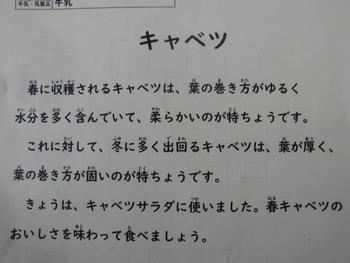 牛乳・乳製品 牛乳
キャベツ
春に収穫されるキャベツは、葉の巻き方がゆるく
水分を多く含んでいて、柔らかいのが特ちょうです。
これに対して、冬に多く出回るキャベツは、葉が厚く、
葉の巻き方が固いのが特ちょうです。
きょうは、キャベツサラダに使いました。春キャベツの
おいしさを味わって食べましょう。